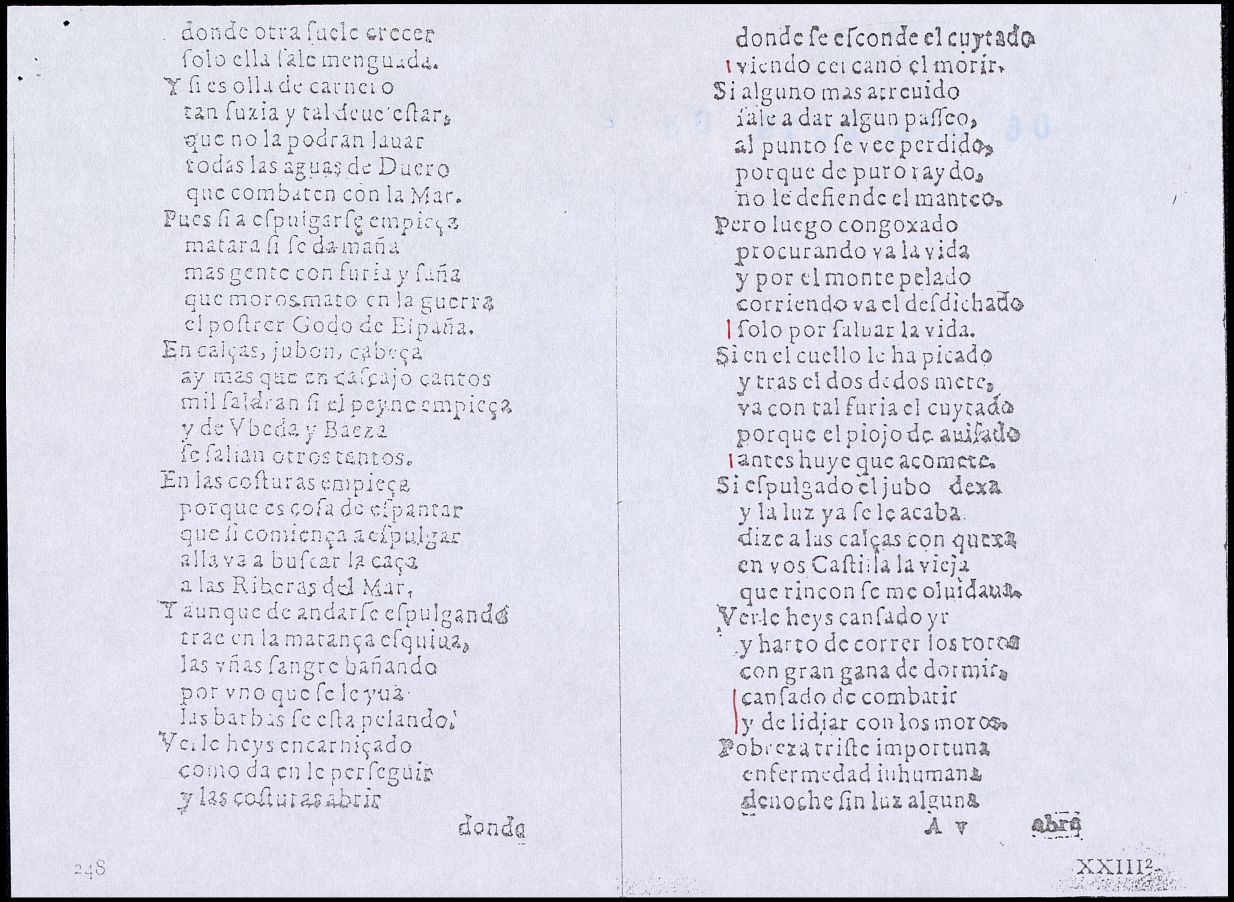 donde otra ſuele crecer
ſolo ella ſale menguada.
Y ſi es olla de carnero
tan ſuzia y tal deue eſtar,
que no la podran lauar
todas las aguas de Duero
que combaten con la Mar.
Pues ſi a eſpulgarſe empieça
matara ſi ſe da maña
mas gente con furia y ſaña
que moros mato en la guerra
el poſtrer Godo de Eſpaña.
En calças, jubon, cabeça
ay mas que en caſcajo cantos
mil ſaldran ſi el peyne empieça
y de Vbeda y Baeza
ſe ſalian otros tantos.
En las coſturas empieça
porque es coſa de eſpantar
que ſi comiença a eſpulgar
alla va a buſcar la caça
a las Riberas del Mar,
Y aunque de andarſe eſpulgando
trae en la matança eſquiua,
las vñas ſangre bañando
por vno que ſe le yua
las barbas ſe eſta pelando.
Verle heys encarniçado
como da en le perſeguir
y las coſturas abrir
donde
248
donde ſe eſconde el cuytado
viendo cercano el morir.
Si alguno mas atreuido
ſale a dar algun paſſeo,
al punto ſe vee perdido,
porque de puro raydo,
no le defiende el manteo.
Pero luego congoxado
procurando va la vida
y por el monte pelado
corriendo va el deſdichado
ſolo por ſaluar la vida.
Si en el cuello le ha picado
y tras el dos dedos mete,
va con tal furia el cuytado
porque el piojo de auiſado
antes huye que acomete.
Si eſpulgado el jubo dexa
y la luz ya ſe le acaba
dize a las calças con quexa
en vos Caſtilla la vieja
que rincon ſe me oluidaua.
Verle heys canſado yr
y harto de correr los toros
con gran gana de dormir,
canſado de combatir
y de lidiar con los moros.
Pobreza triſte importuna
enfermedad inhumana
denoche ſin luz alguna
A v abre
XXIII²